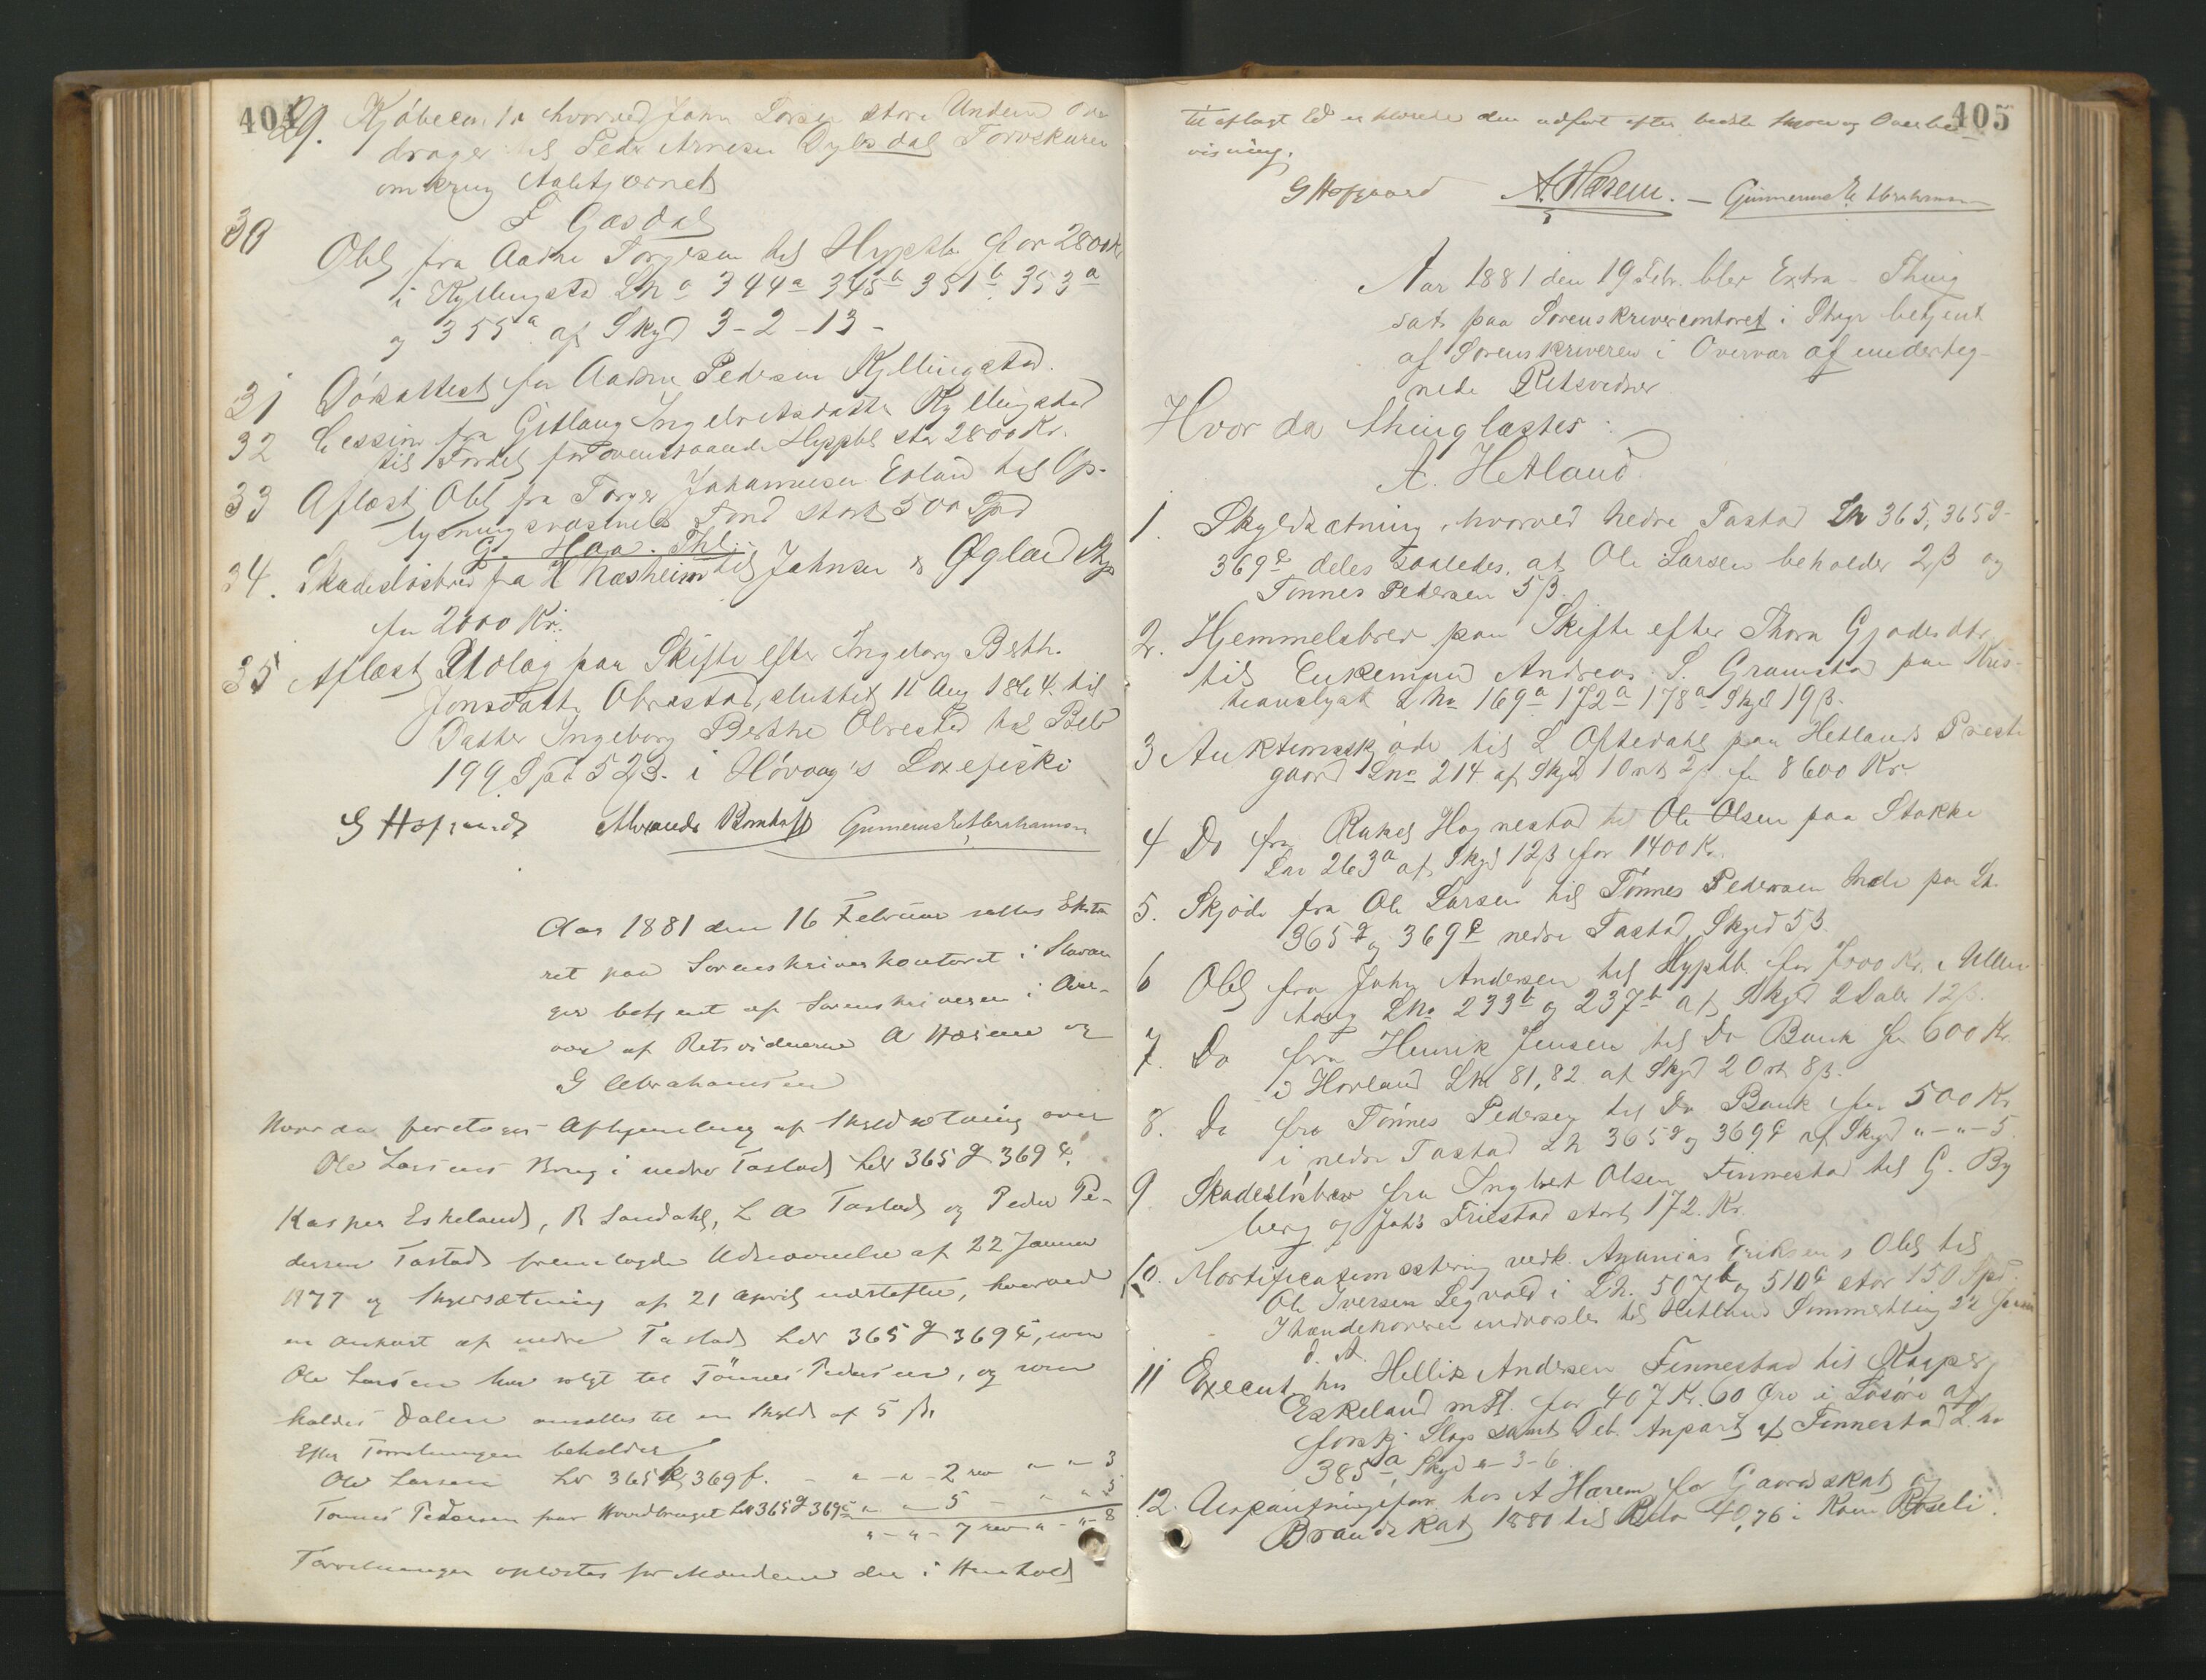 404
29. Kjøbecon hvorved John Lorsen store Undem Over
drager til Peder Arnesen Dylsdal Torvskuren
omkring Aaletjernet
F Gjesdal
30 Obl fra Aadne Torgersen til Hypthb for 2800 Kr
i Kyllingstad Lno 344a 345b 351b 353a
og 355a af Skyld 3-2-13-
31 Dødsattest for Aadne Pedersen Kyllingstad.
32 Cession fra Gitlaug Ingebretsdatter Kyllingstad
til Fordel for ovenstaaende Hypobl stor 2800 Kr.
33 Aflæst Obl fra Torger Johannesen Eoland til Op-
lysningsvæsnets Fond stort 500 Spd
G. Haa. Thl.
34. Skadesløsbrev fra H Næsheim til Johnsen & Øglænd
for 2000 Kr.
35 Aflæst Udlæg paa Skifte efter Ingeborg Berth.
Jonsdatter Obrestad, sluttet 11 Aug 1864. til
Datter Ingeborg Berthe Obrestad hel Belb
199 Spd 52 β. i Høvaag's Laxefiski
G Hofgaard Gunnerius E. Abrahamsen
Aar 1881 den 16 Februar sattes Ekstra
ret paa Sorenskriverkontoret i Stavan
ger betjent af Sorenskriveren i Over-
vær af Retsvidnerne A Hærem og
G Abrahamsen
Hvor da foretoges Afhjemling af Skyldsætning over
Ole Larsens Brug i nedre Tastad Lnr 365 g 369 e.
Kasper Eskeland, R Sandahl, L A Tastad og Peder Pe-
dersen Tastad fremlagde Udnævnelse af 22 Januar
1877 og Skyldsætning af 21 April næstefter, hvorved
en anpart af nedre Tastad Lnr 365 g 369 e, som
Ole Larsen har solgt til Tönnes Pedersen, og som
kaldes Dalen ansattes til en Skyld af 5 β.
Efter Forretningen beholder
Ole Larsen Lnr 365 369 f. - " - " - 2 rev " - " 3
Tønnes Pedersen paa Hovedbruget Lnr 365 g 369 e " " 5 - " " 5
" - " - 7 rev " - " - 8
Forretningen oplæstes for Mændene der i Henhold
405
til aflagt Ed erklærede den udført efter bedste Skjøn og Overbe
visning.
G Hofgaard A. Hærem. - Gunnerius E. Abrahamsen
Aar 1881 den 19 Febr. blev Extra Thing
sat paa Sorenskrivercontoret i Stvgr betjent
af Sorenskriveren i Overvær af underteg-
nede Retsvidner
Hvor da thinglæstes:
A. Hetland
1. Skyldsætning, hvorved Nedre Tastad Ln 365, 365g-
369e deles saaledes, at Ole Larsen beholder 2 β og
Tønnes Pedersen 5 β.
2. Hjemmelsbrev paa Skifte efter Thora Gjødesdtr
til Enkemand Andreas S. Gramstad paa Kris-
tianslyst Lno 169a 172a 178a Skyld 19 β.
3 Auktionsskjøde til L Oftedahl paa Hetlands Præste
gaard Lno 214. af Skyld 1 Ort 2 β. for 8600 Kr
4 Do fra Rakel Hognestad til Ole Olsen paa Stokke
Lno 263a af Skyld 12 β for 1400 Kr.
5. Skjøde fra Ole Larsen til Tönnes Pedersen Inde paa Ln
365g og 369e nedre Tastad Skyld 5 β.
6 Obl fra John Andersen til Hypthb. for 7000 Kr. i Ullen
haug Lno 233b og 237b af Skyld 2 Daler 12 β.
7. Do fra Henrik Jensen til Do Bank for 600 Kr
i Horland Lno 81, 82 af Skyld 2 Ort 8 β.
8. Do fra Tönnes Pedersen til Do Bank for 500 Kr
i nedre Tastad Ln 365g og 369e af Skyld " - " - 5
9 Skadesløsbrev fra Ingbret Olsen Finnestad til G. By
berg og Johs Friestad stort 172. Kr.
10. Mortificationsstevning vedk. Ananias Eriksens Obl til
Ole Iversen Legvold i Ln. 507b og 510b stor 150 Spd.
Ihændehaveren indvarsles til Hetland Sommerthing 22 Juni
d. A.
11 Execut. hos Hellik Andersen Finnestad til Kasper
Eskeland m. fl. for 407 Kr. 60 Øre i Løsøre af
forskj. Slags samt Deb. Anpart af Finnestad L. no
385a, Skyld " - 3 - 6.
12. Udpantningsforr. hos A Hærem for Gaardskat og
Brandskat 1880 til Beløb 40,76 i Roseli.